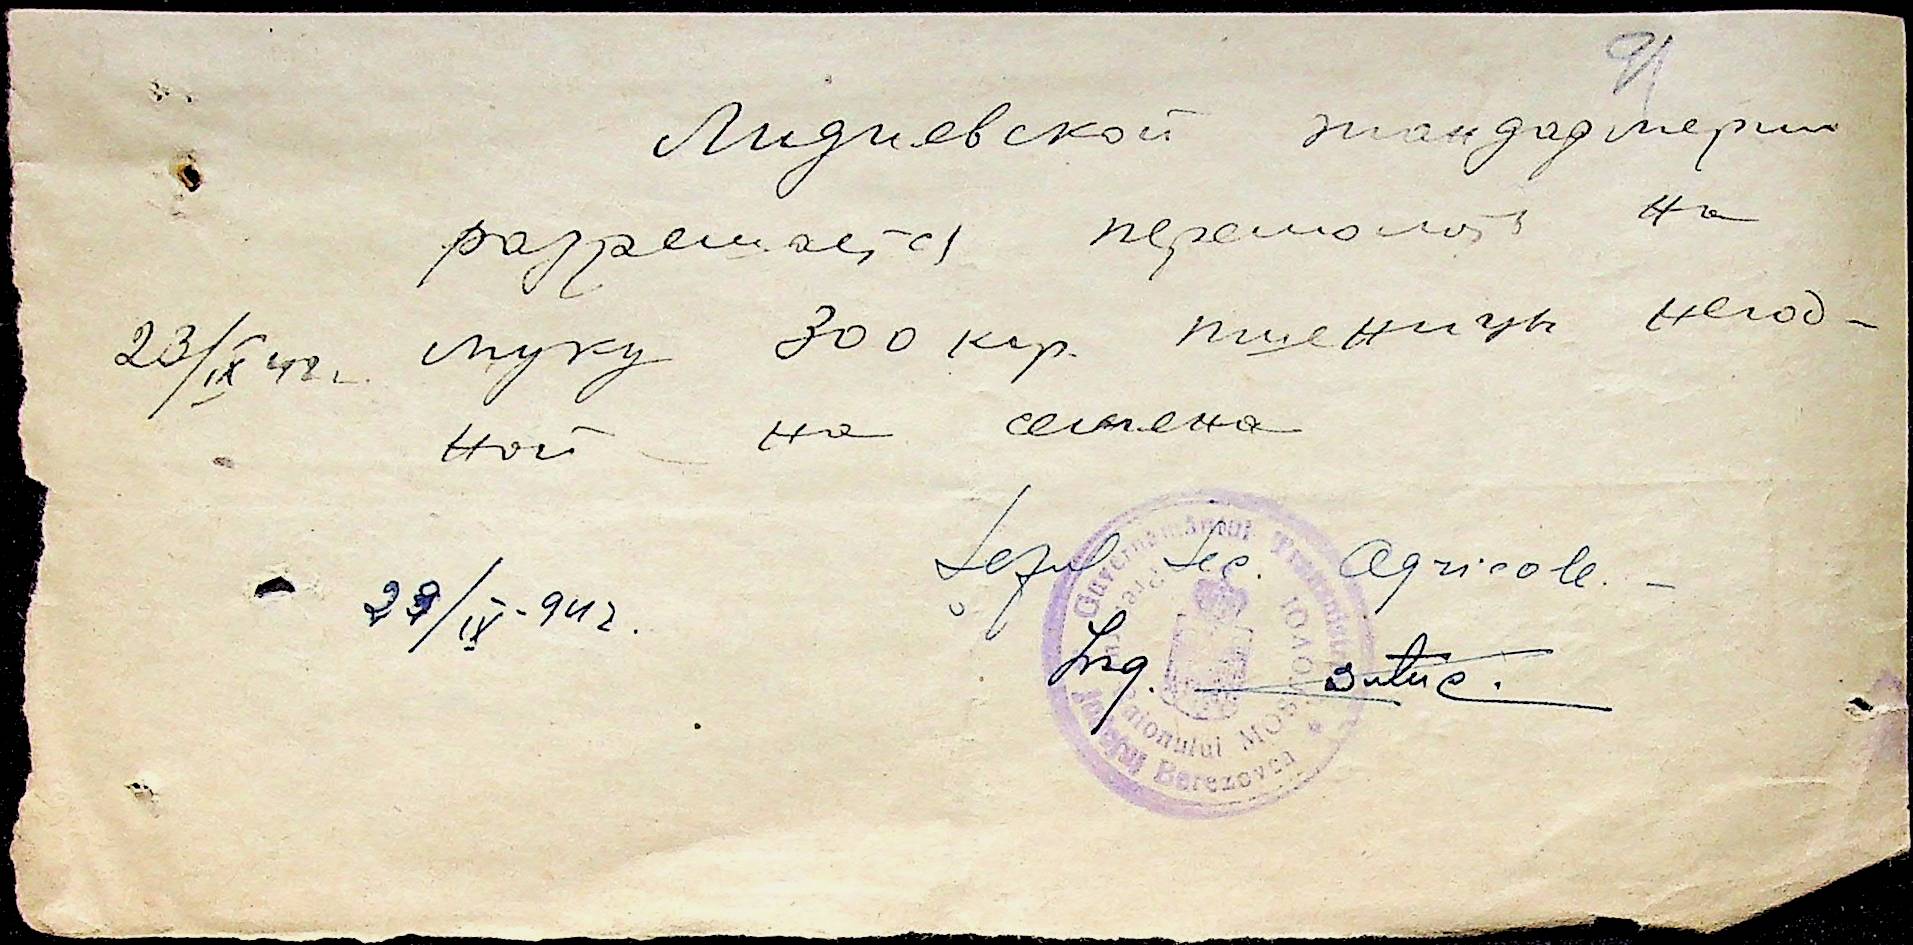 91
Лидиевской жандармерии
разрешается перемолоть на
23/IX 42 г. муку 300 кгр. пшеницы негод-
ной на семена
Șeful Sec. Agricole. -
29/IX-942.
Ing.
Guvernământul Transnistriei
Județul Berezovca
Raionului MOSTOVOI